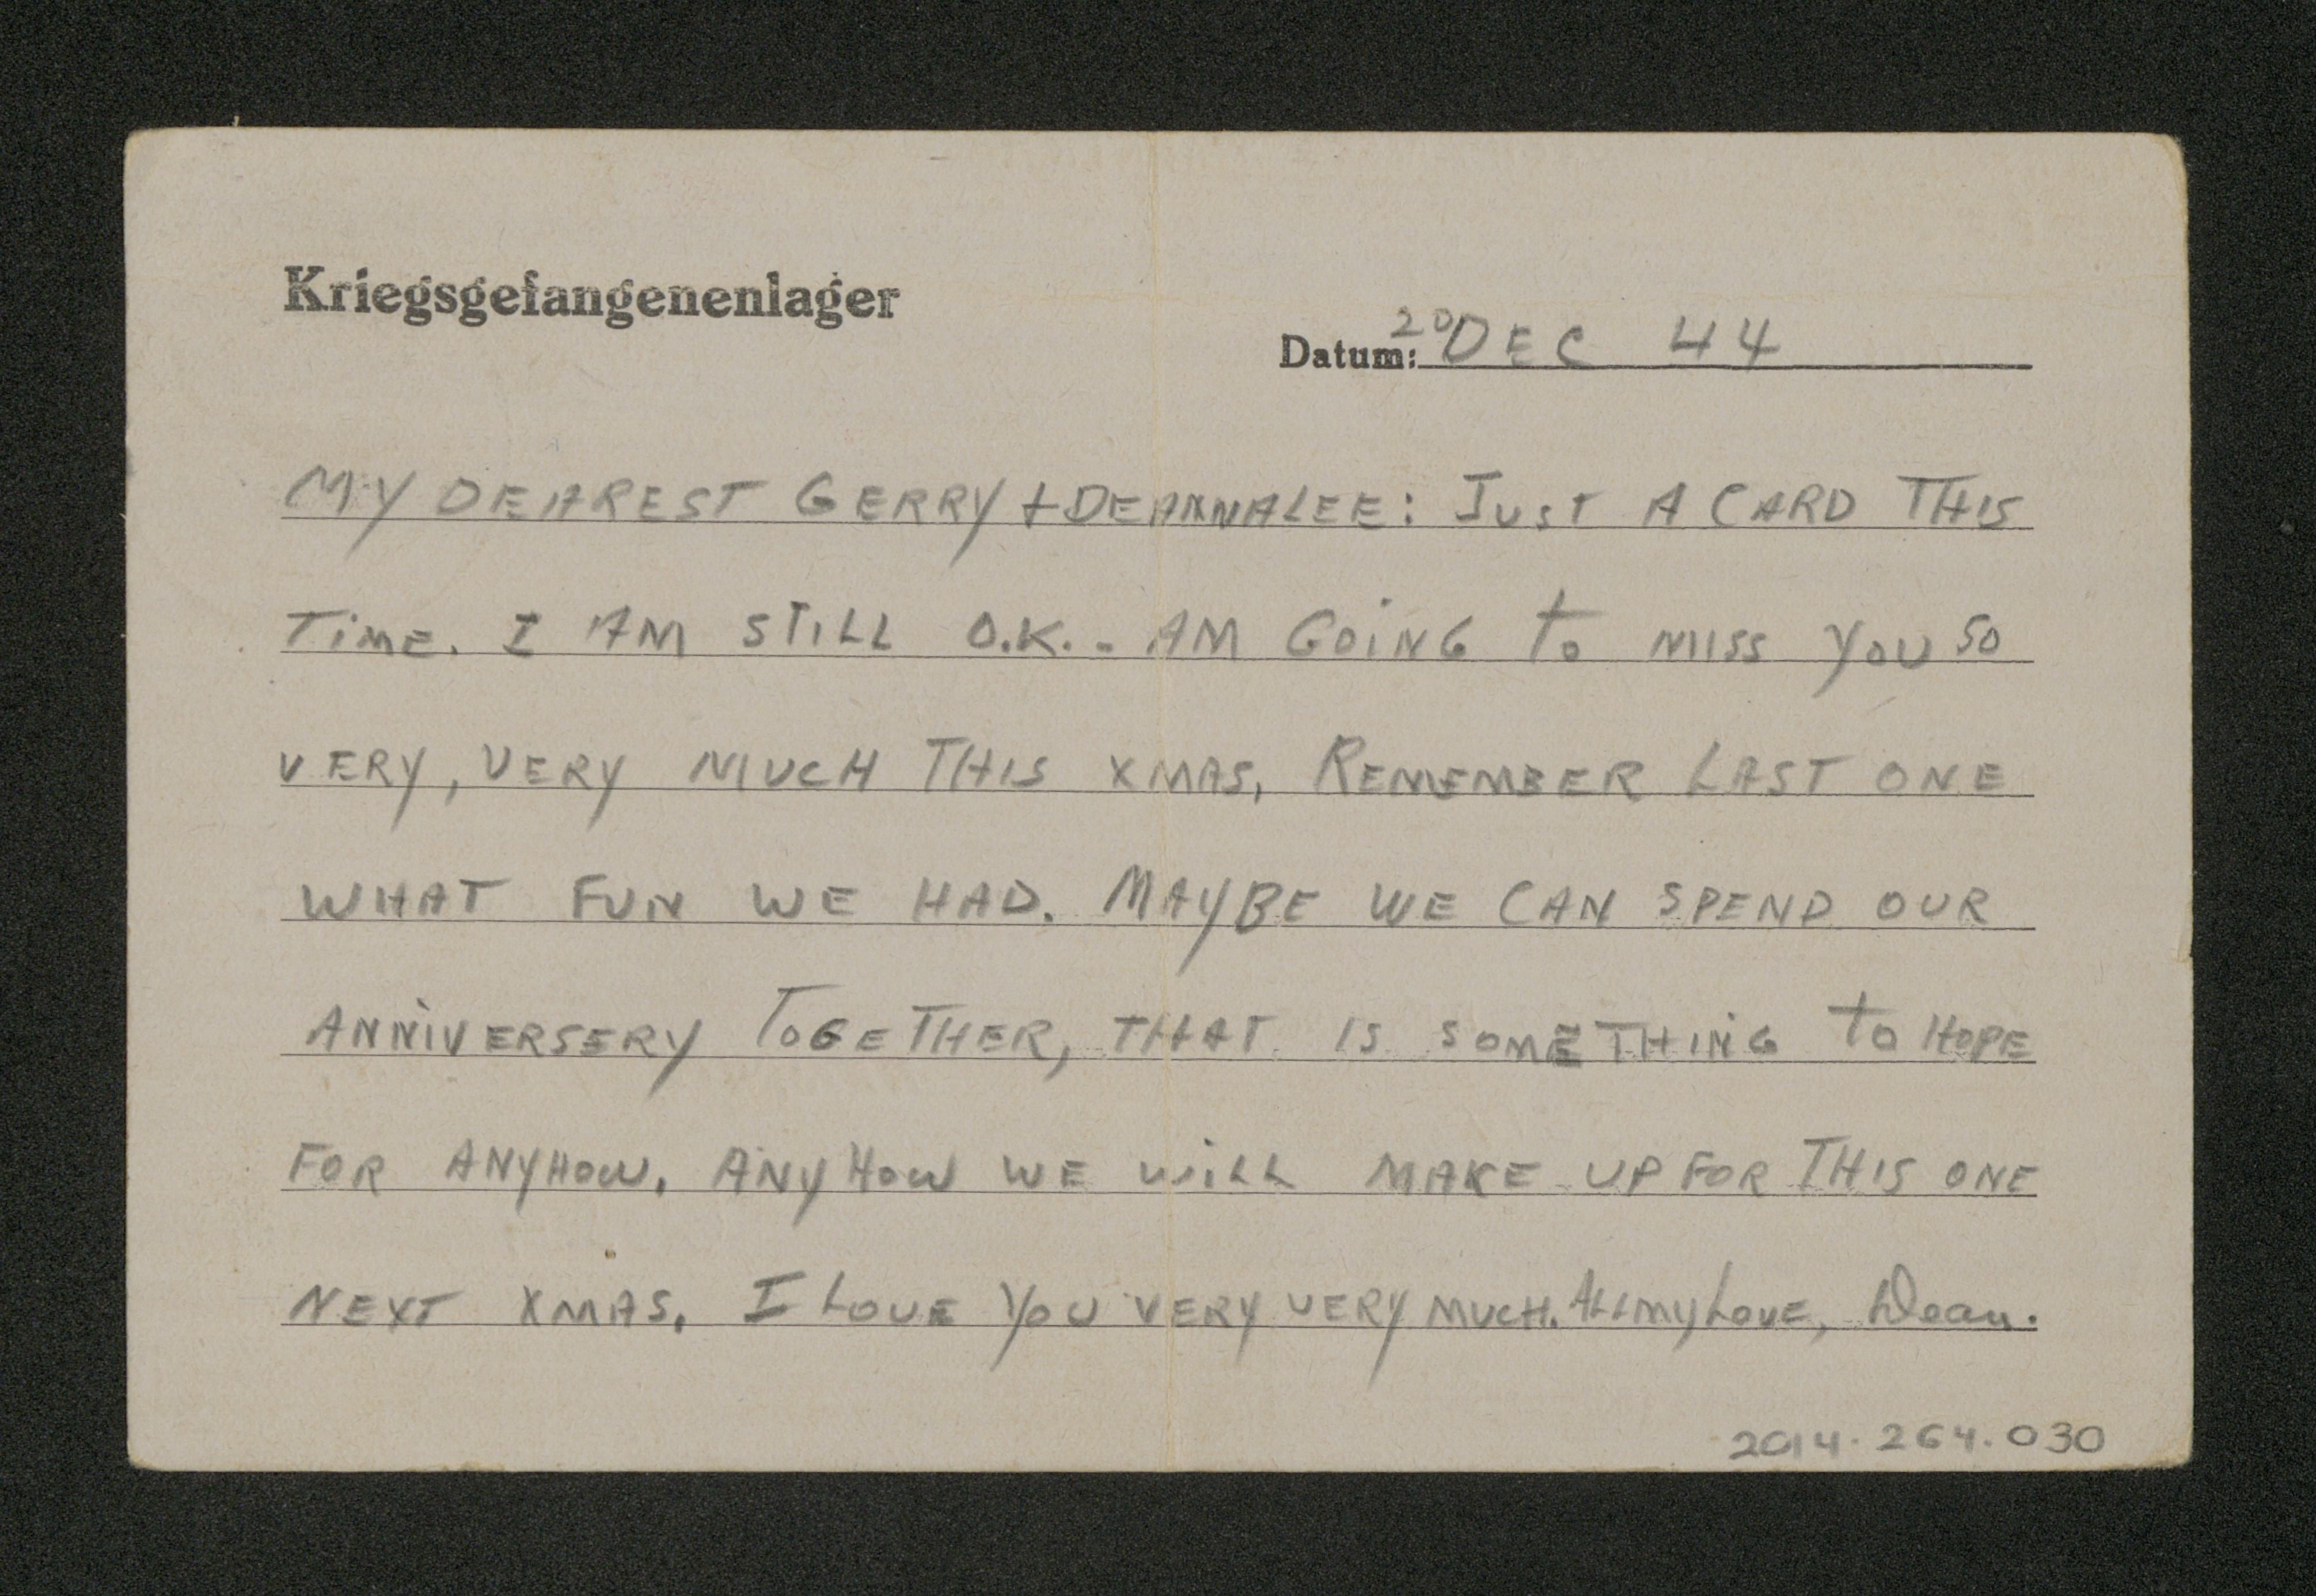 Kriegsgefangenenlager
Datum: 20 DEC 44
MY DEAREST GERRY + DEANNALEE: JUST A CARD THIS
TIME. I AM STILL O.K. - AM GOING to MISS YOU SO
VERY, VERY MUCH THIS XMAS, REMEMBER LAST ONE
WHAT FUN WE HAD. MAYBE WE CAN SPEND OUR
ANNIVERSERY TOGETHER, THAT IS SOMETHING to HOPE
FOR ANYHOW. ANYHOW WE WILL MAKE UP FOR THIS ONE
NEXT XMAS. I LOVE YOU VERY VERY MUCH. ALL MY LOVE, Dean.
2014.264.030